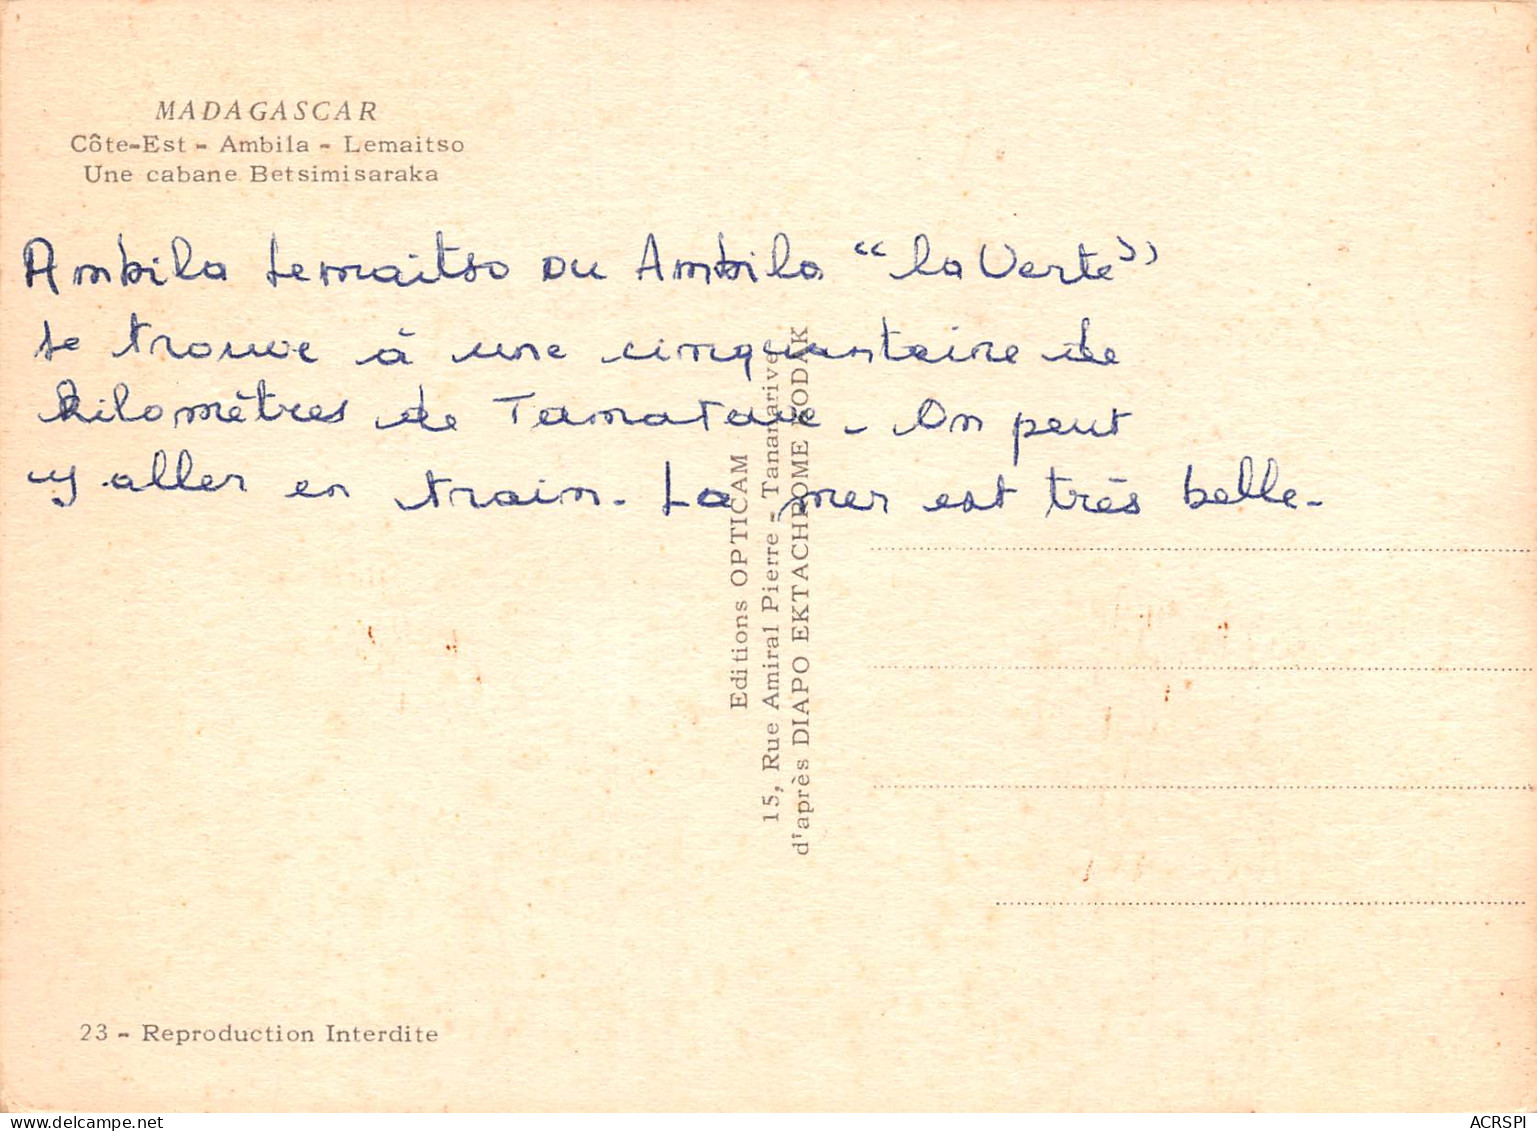 MADAGASCAR
Côte-Est - Ambila - Lemaitso
Une cabane Betsimisaraka
Ambila Lemaitso ou Ambila "la Verte"
se trouve à une cinquantaine de
kilomètres de Tamatave - On peut
y aller en train - La mer est très belle -
Editions OPTICAM
15, Rue Amiral Pierre - Tananarive
d'après DIAPO EKTACHROME KODAK
23 - Reproduction Interdite
delcampe.net
ACRSPI